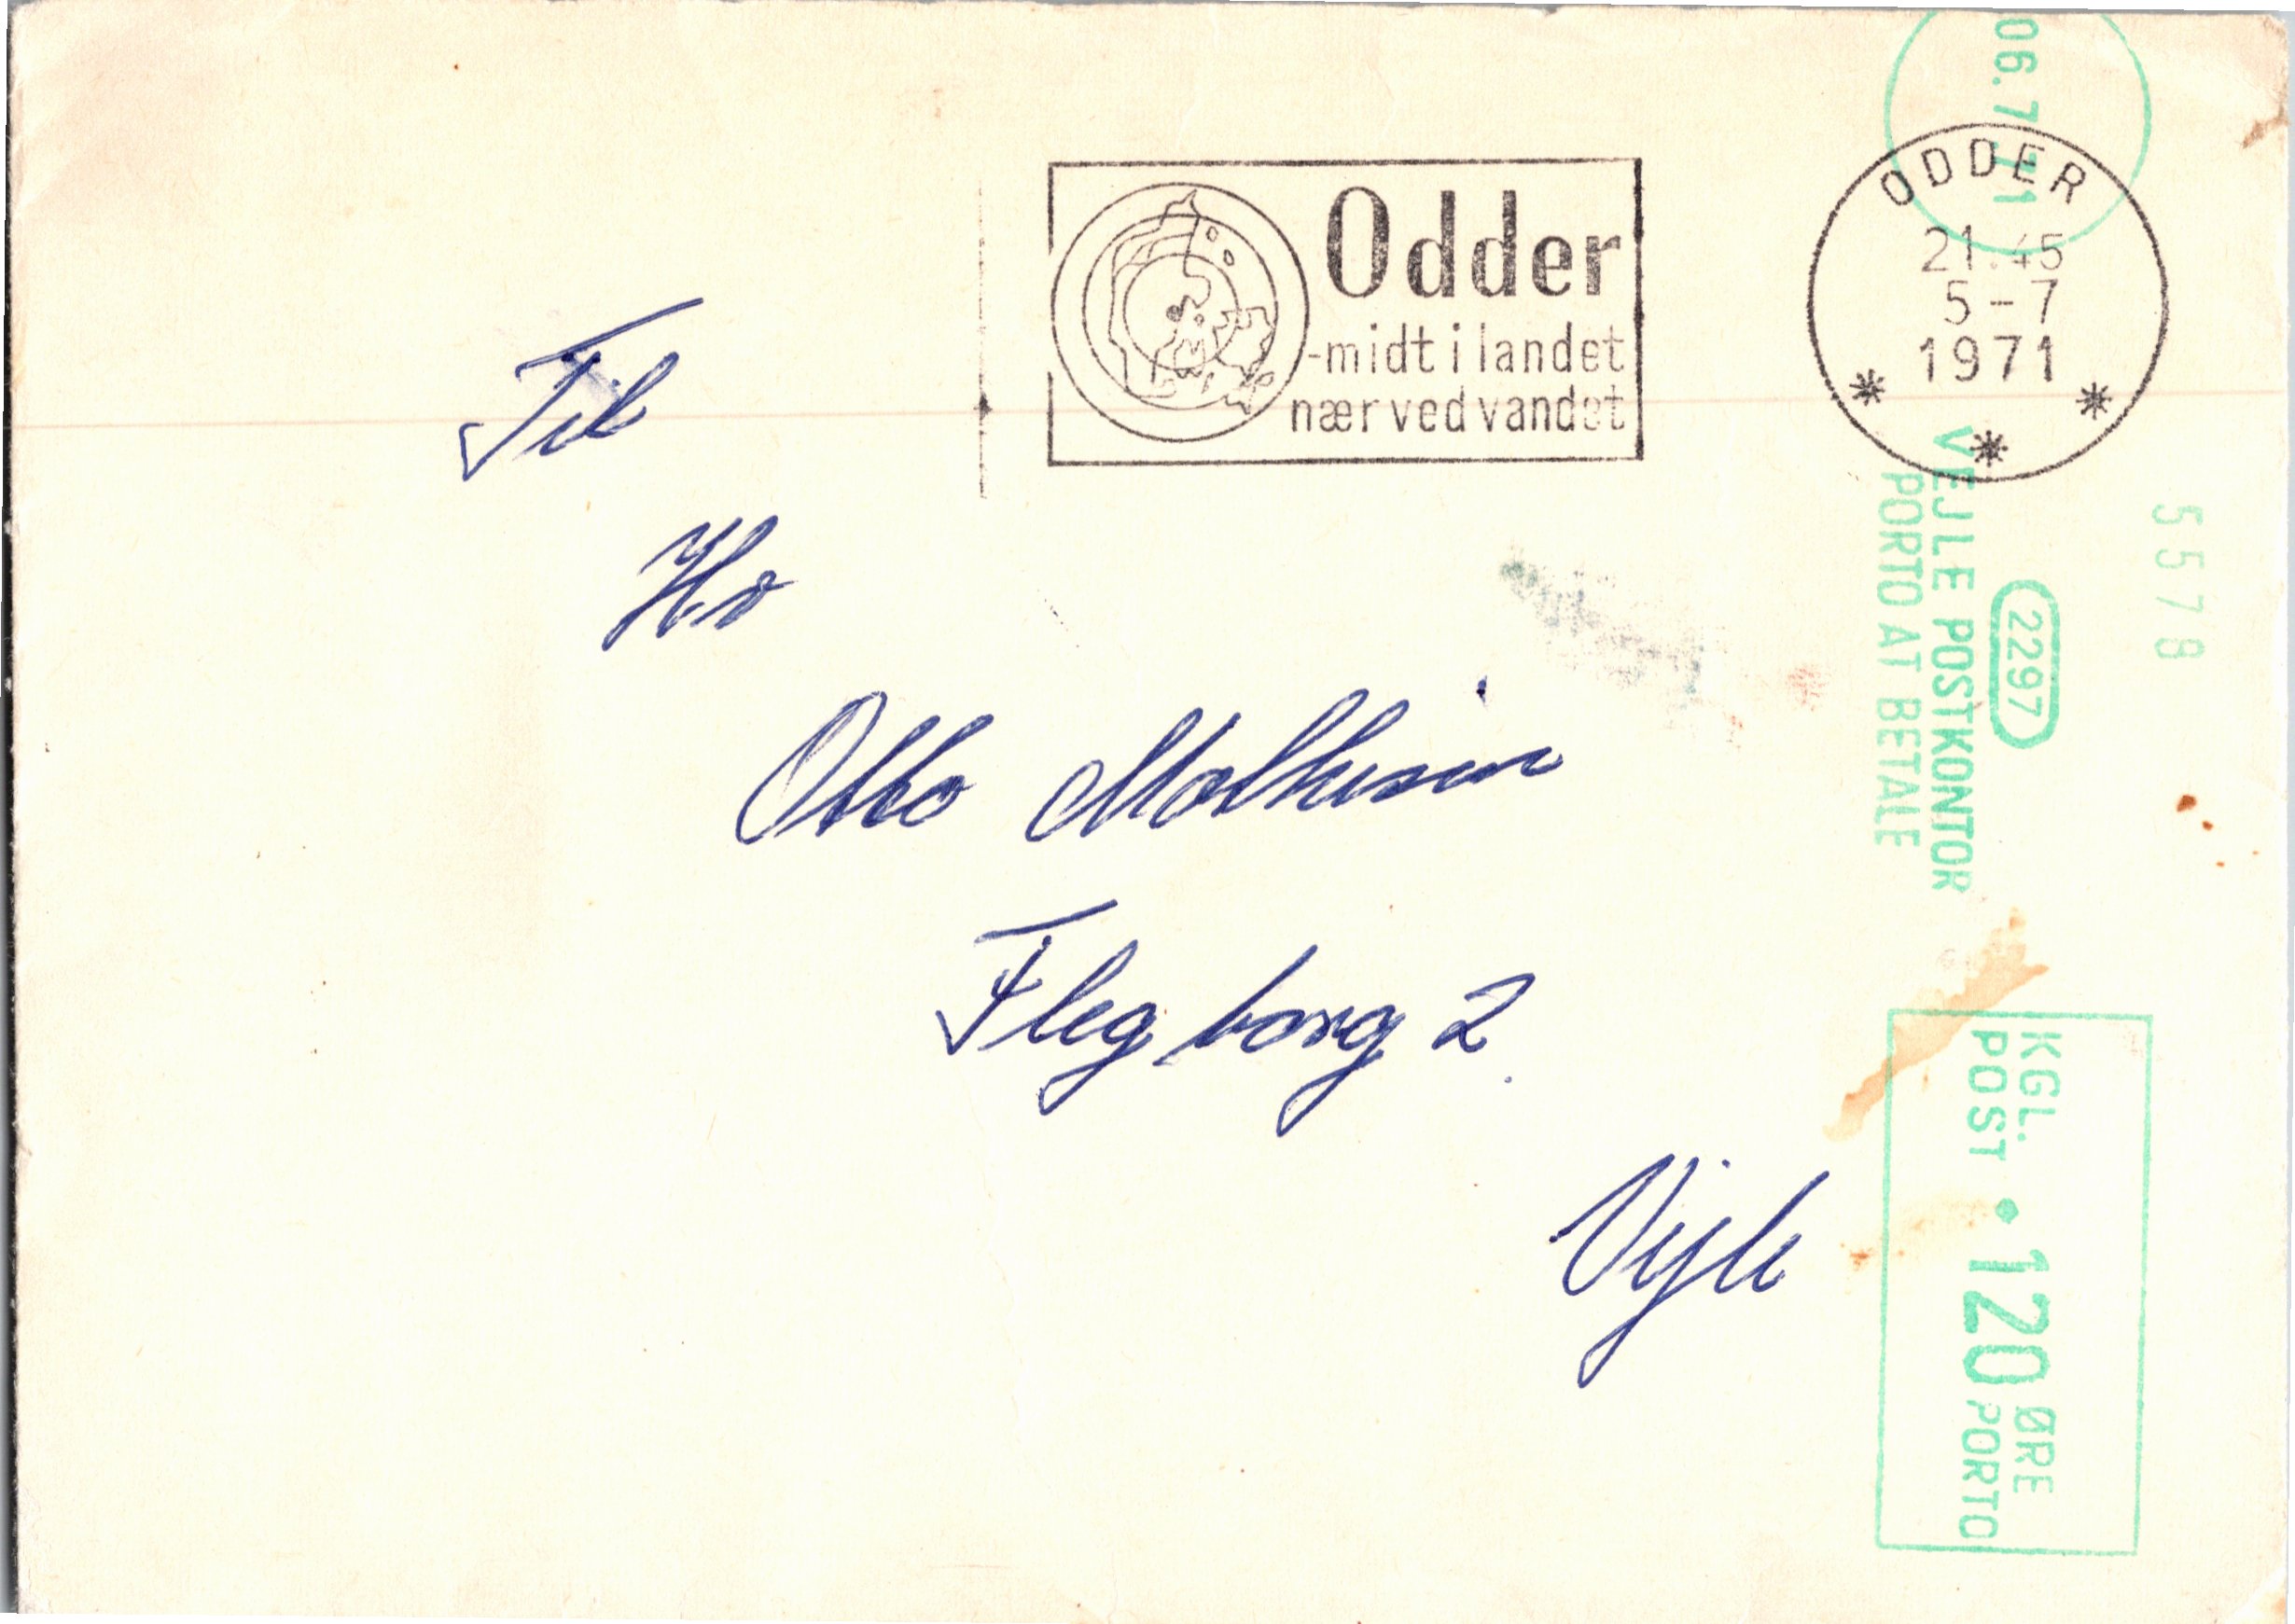 Odder
-midt i landet
nær ved vandet
ODDER
21.45
5-7
1971
Til
Hr
Otto Mathisen
Flegborg 2
Vejle
06.7.71
VEJLE POSTKONTOR
PORTO AT BETALE
2297
5578
KGL.
POST
120 ØRE
PORTO